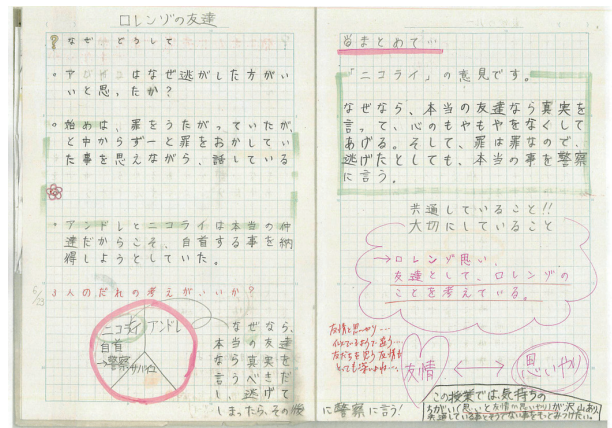 ロレンゾの友達
なぜ、どうして
。ア　はなぜ逃がした方がい
いと思ったか？
。始めは、罪をうたがっていたが、
と中からずーと罪をおかしてい
た事を思えながら、話している
。アンドレとニコライは本当の仲
達だからこそ、自首する事を納
得しようとしていた。
5/23
3人のだれの考えがいいか？
ニコライ アンドレ
自首
→警察 サバイユ
なぜなら、
本当の友達
なら真実を
言うべきだ
し、逃げて
しまったら、その後に警察に言う!
まとめて…
「ニコライ」の意見です。
なぜなら、本当の友達なら真実を
言って、心のもやもやをなくして
あげる。そして、罪は罪なので、
逃げたとしても、本当の事を警察
に言う。
共通していること!!
大切にしていること
→ロレンゾ思い、
友達として、ロレンゾの
ことを考えている。
友情と思いやり…
似ているようで違う…
友だちを思う友情も
とても深いよね…
友情
思いやり
この授業では、気持ちの
ちがい(思いと友情や思いやり)が沢山あり、
共通している事とそうでない事をもっとみつけたい。